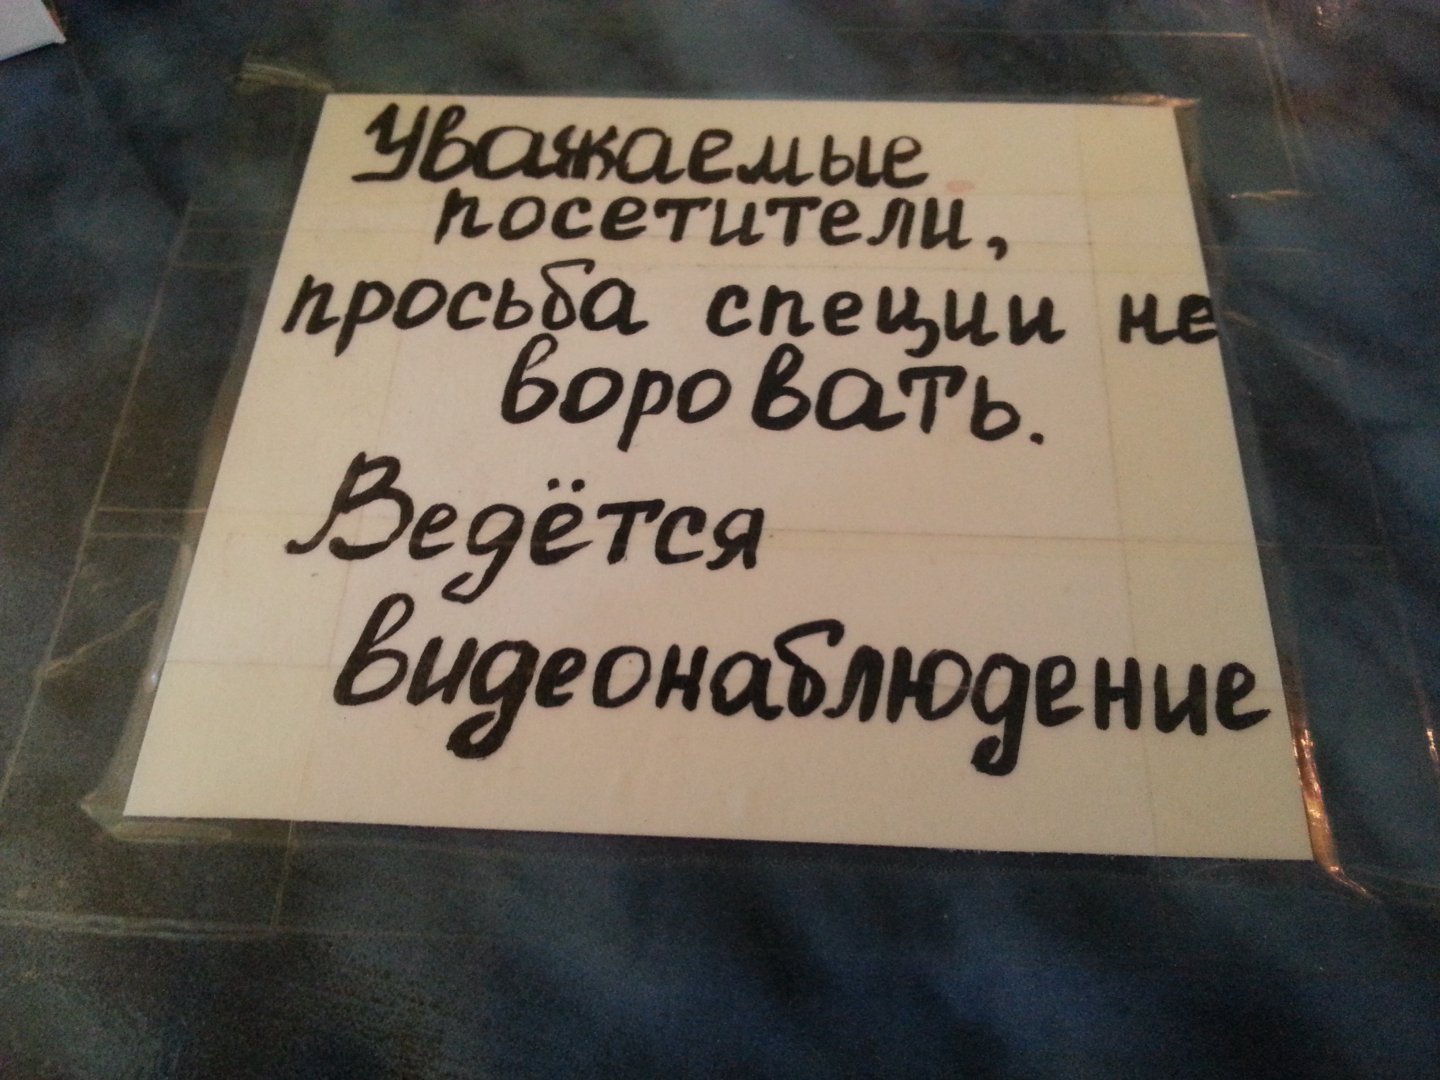 Уважаемые
посетители,
просьба специи не
воровать.
Ведётся
видеонаблюдение